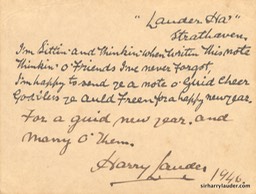 "Lauder Ha'"
Strathaven.
I'm Sittin' and Thinkin' when writin This note
Thinkin' o' Friends I've never Forgot
I'm happy to send ye a note o' Guid Cheer
God bless ye auld Freen for a happy new year.
For a guid new year, and
many o' Them.
Harry Lauder
1946.
sirharrylauder.com